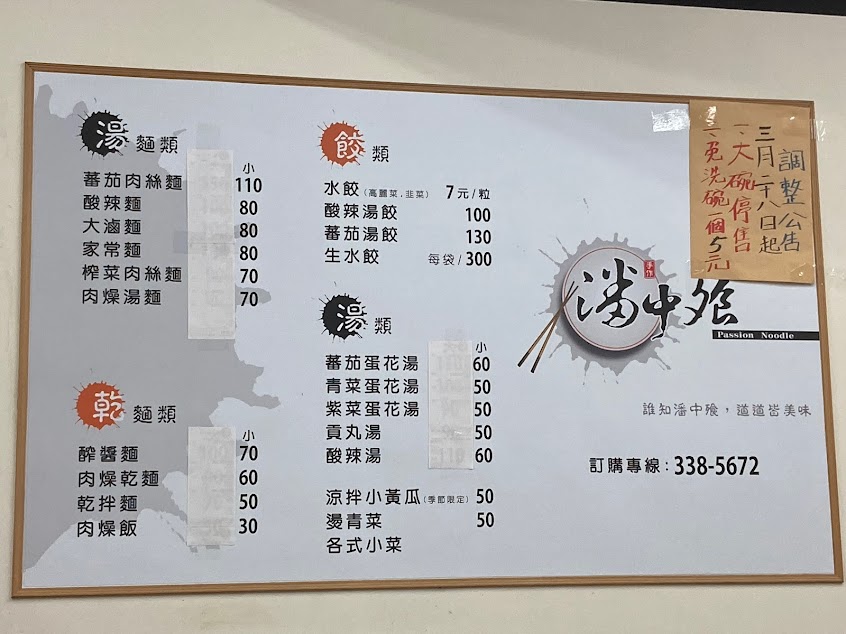 湯 麵類
小
蕃茄肉絲麵 110
酸辣麵 80
大滷麵 80
家常麵 80
榨菜肉絲麵 70
肉燥湯麵 70
乾 麵類
小
醡醬麵 70
肉燥乾麵 60
乾拌麵 50
肉燥飯 30
餃 類
水餃(高麗菜.韭菜) 7元/粒
酸辣湯餃 100
蕃茄湯餃 130
生水餃 每袋/300
湯 類
小
蕃茄蛋花湯 60
青菜蛋花湯 50
紫菜蛋花湯 50
貢丸湯 50
酸辣湯 60
涼拌小黃瓜(季節限定) 50
燙青菜 50
各式小菜
調整公告
三月二十八日起
一、大碗停售
一、免洗碗一個5元
手作
潘中飧
Passion Noodle
誰知潘中飧，道道皆美味
訂購專線：338-5672